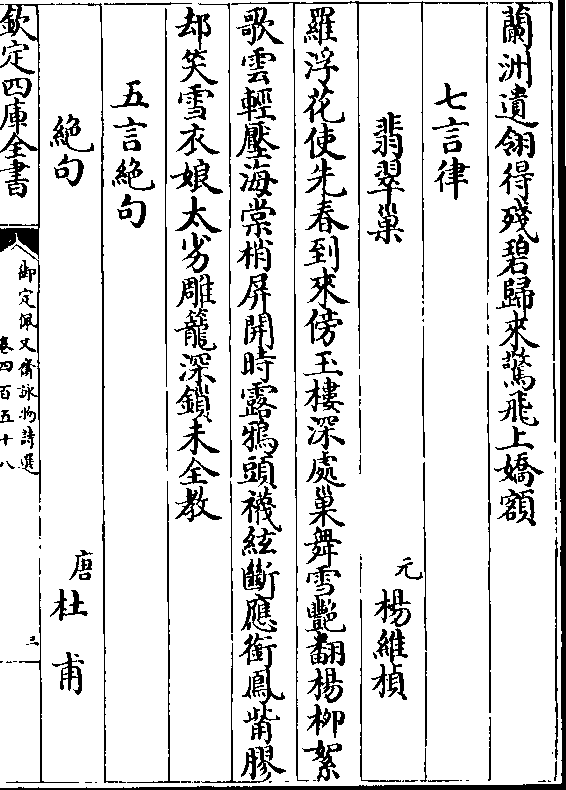 蘭洲遺翎得殘碧歸來驚飛上嬌額
七言律
翡翠巢
元 楊維楨
羅浮花使先春到來傍玉樓深處巢舞雪艷翻楊柳絮
歌雲輕壓海棠梢屏開時露鴉頭襪絃斷應銜鳳觜膠
却笑雪衣娘太劣雕籠深鎖未全教
五言絕句
絕句
唐 杜甫
欽定四庫全書
御定佩文齋詠物詩選
卷四百五十八
三